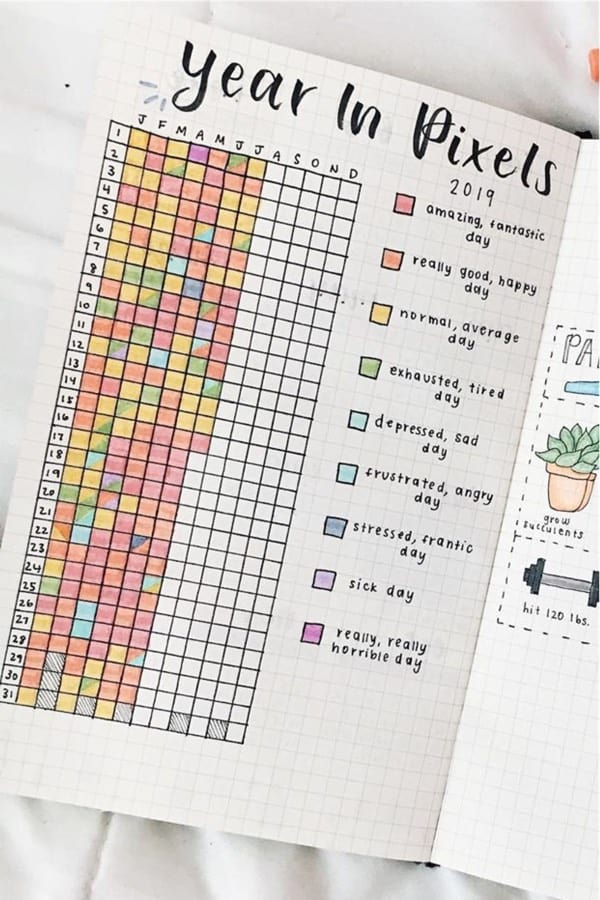 Year In Pixels
2019
J F M A M J J A S O N D
1
2
3
4
5
6
7
8
9
10
11
12
13
14
15
16
17
18
19
20
21
22
23
24
25
26
27
28
29
30
31
amazing, fantastic
day
really good, happy
day
normal, average
day
exhausted, tired
day
depressed, sad
day
frustrated, angry
day
stressed, frantic
day
sick day
really, really
horrible day
grow
succulents
hit 120 lbs.